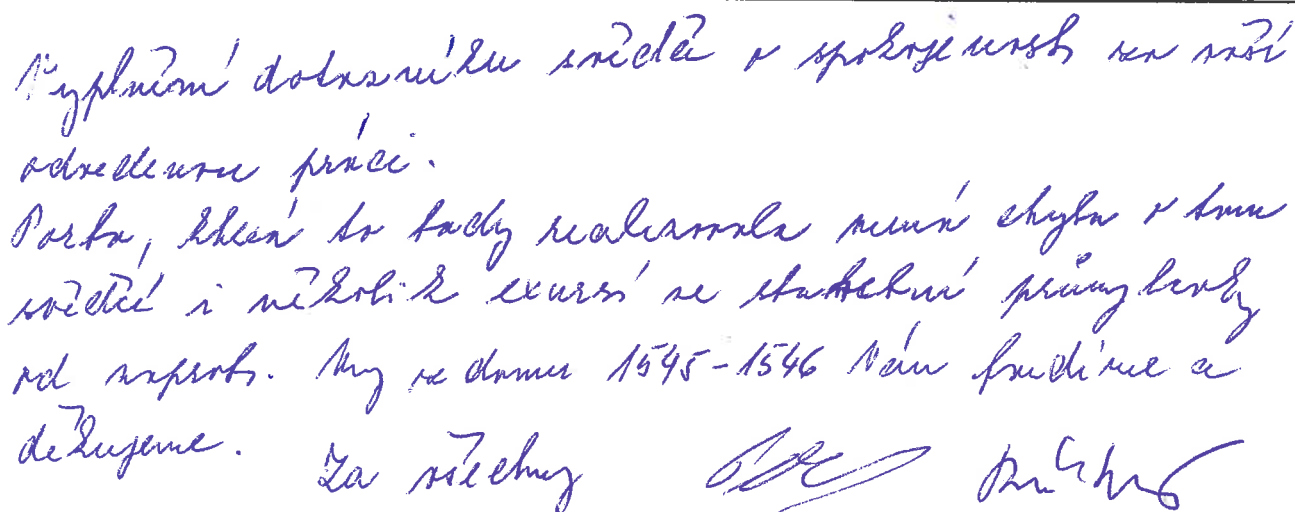 Vyplnění dotazníku svědčí o spokojenosti za vaší
odvedenou práci.
Parta, která to tady realizovala nemá chybu o tom
svědčí i několik exursí ze stavební průmyslovky
od naproti. My ze domu 1545-1546 Vám fandíme a
děkujeme. Za všechny